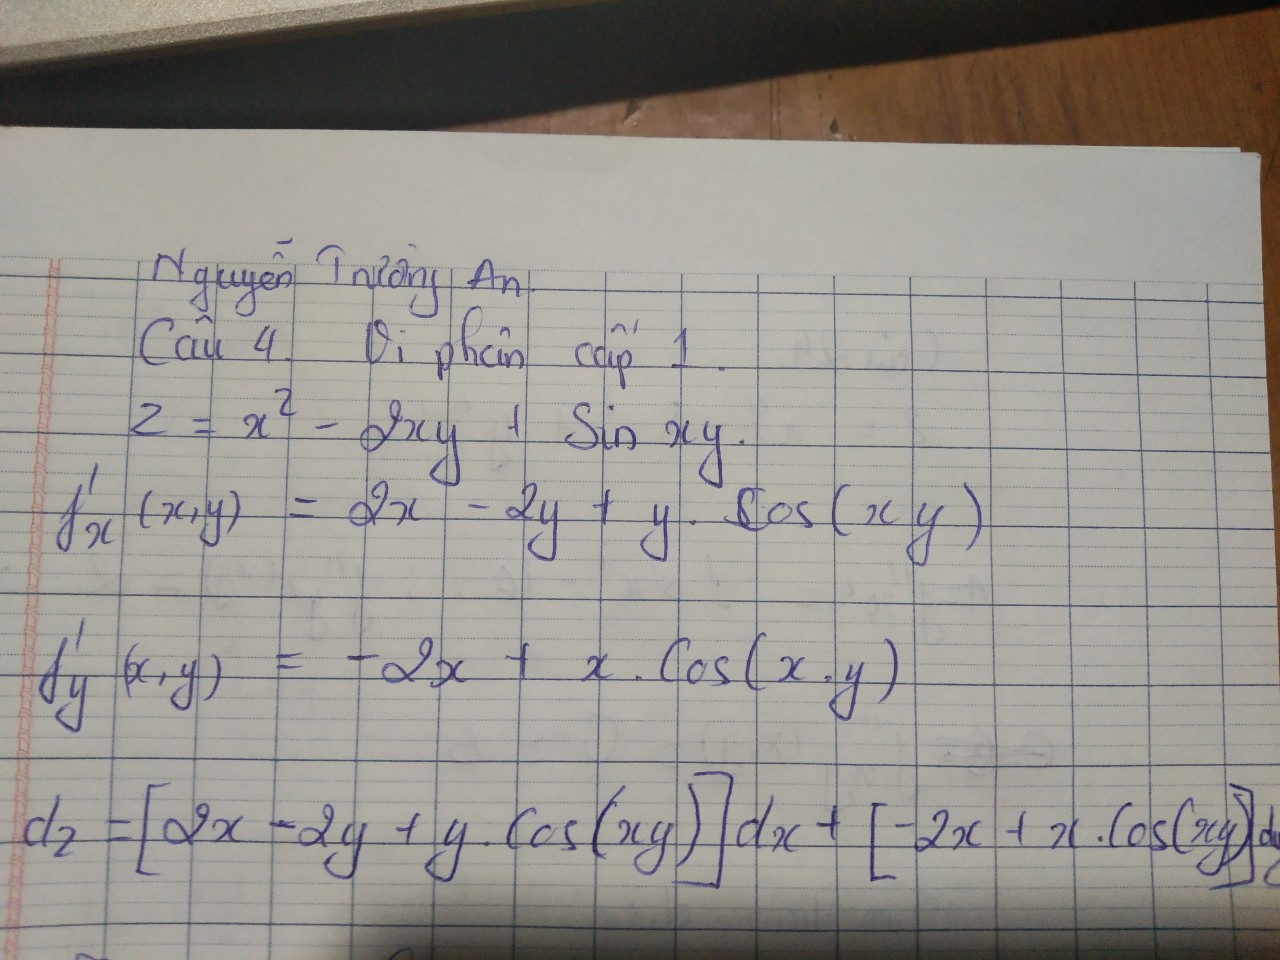 Nguyễn Trường An
Câu 4. Vi phân cấp 1.
z = x² - 2xy + Sin xy.
f'x (x,y) = 2x - 2y + y. Cos(xy)
f'y (x,y) = -2x + x. Cos(x.y)
dz = [2x - 2y + y. Cos(xy)] dx + [-2x + x. Cos(xy)] dy